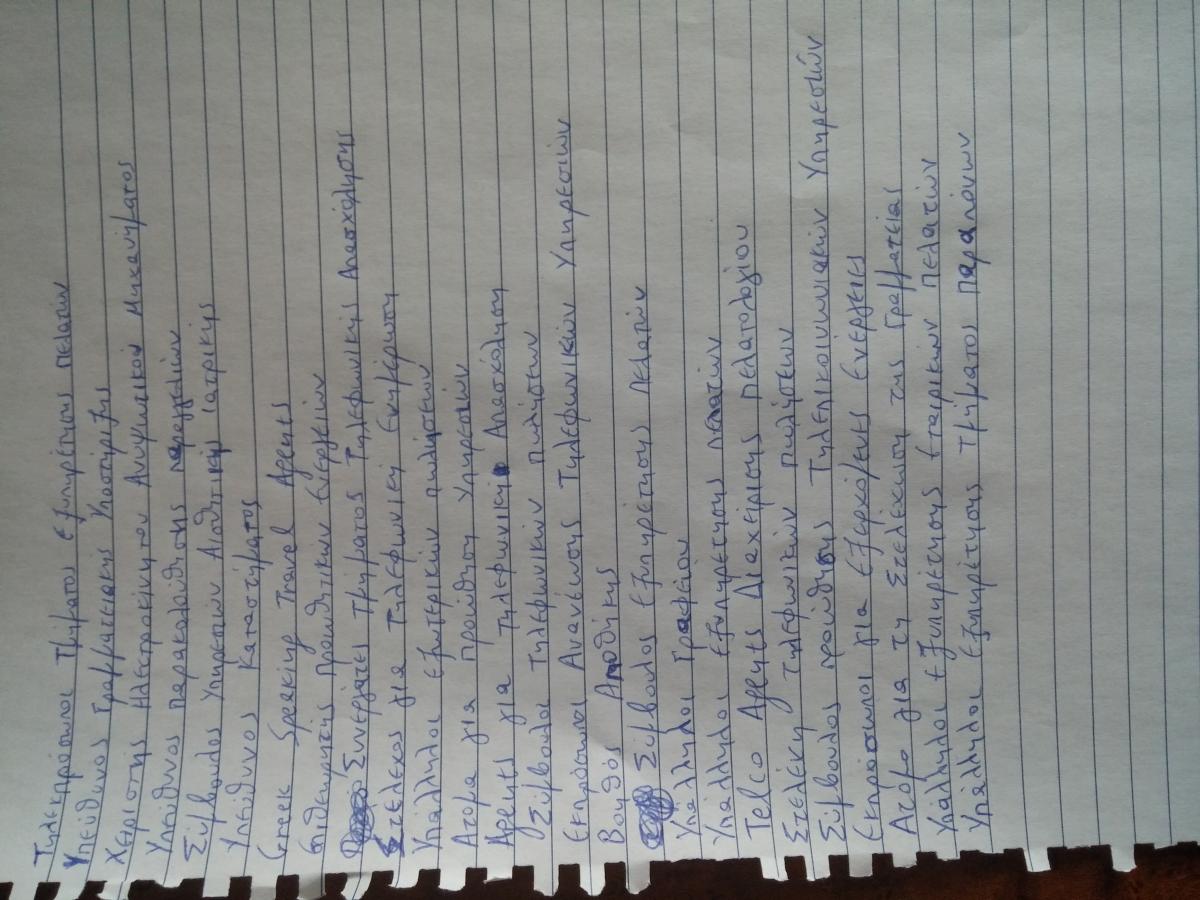 Τηλεκπρόσωποι Τμήματος εξυπηρέτησης πελατών
Υπεύθυνος Γραμματειακής Υποστήριξης
Χειριστής Ηλεκτροκίνητου Ανυψωτικού Μηχανήματος
Υπεύθυνος παρακολούθησης παραγγελιών
Σύμβουλος Υπηρεσιών Αισθητικής Ιατρικής
Υπεύθυνος Καταστήματος
Greek Speaking Travel Agents
Επιθεωρητής Προωθητικών Ενεργειών
Συνεργάτες Τμήματος Τηλεφωνικής Απασχόλησης
Στέλεχος για Τηλεφωνική Ενημέρωση
Υπάλληλοι εξωτερικών πωλήσεων
Άτομα για προώθηση Υπηρεσιών
Agents για τηλεφωνική Απασχόληση
Σύμβουλοι Τηλεφωνικών πωλήσεων
Εκπρόσωποι Ανανέωσης Τηλεφωνικών Υπηρεσιών
Βοηθός Αποθήκης
Σύμβουλος εξυπηρέτησης πελατών
Υπάλληλοι Γραφείου
Υπάλληλοι εξυπηρέτησης πελατών
Telco Agents Διαχείρισης πελατολογίου
Στελέχη τηλεφωνικών πωλήσεων
Σύμβουλος προώθησης Τηλεπικοινωνιακών Υπηρεσιών
Εκπρόσωποι για εξερχόμενες ενέργειες
Άτομο για τη στελέχωση της Γραμματείας
Υπάλληλοι εξυπηρέτησης εταιρικών πελατών
Υπάλληλοι εξυπηρέτησης τμήματος παραπόνων